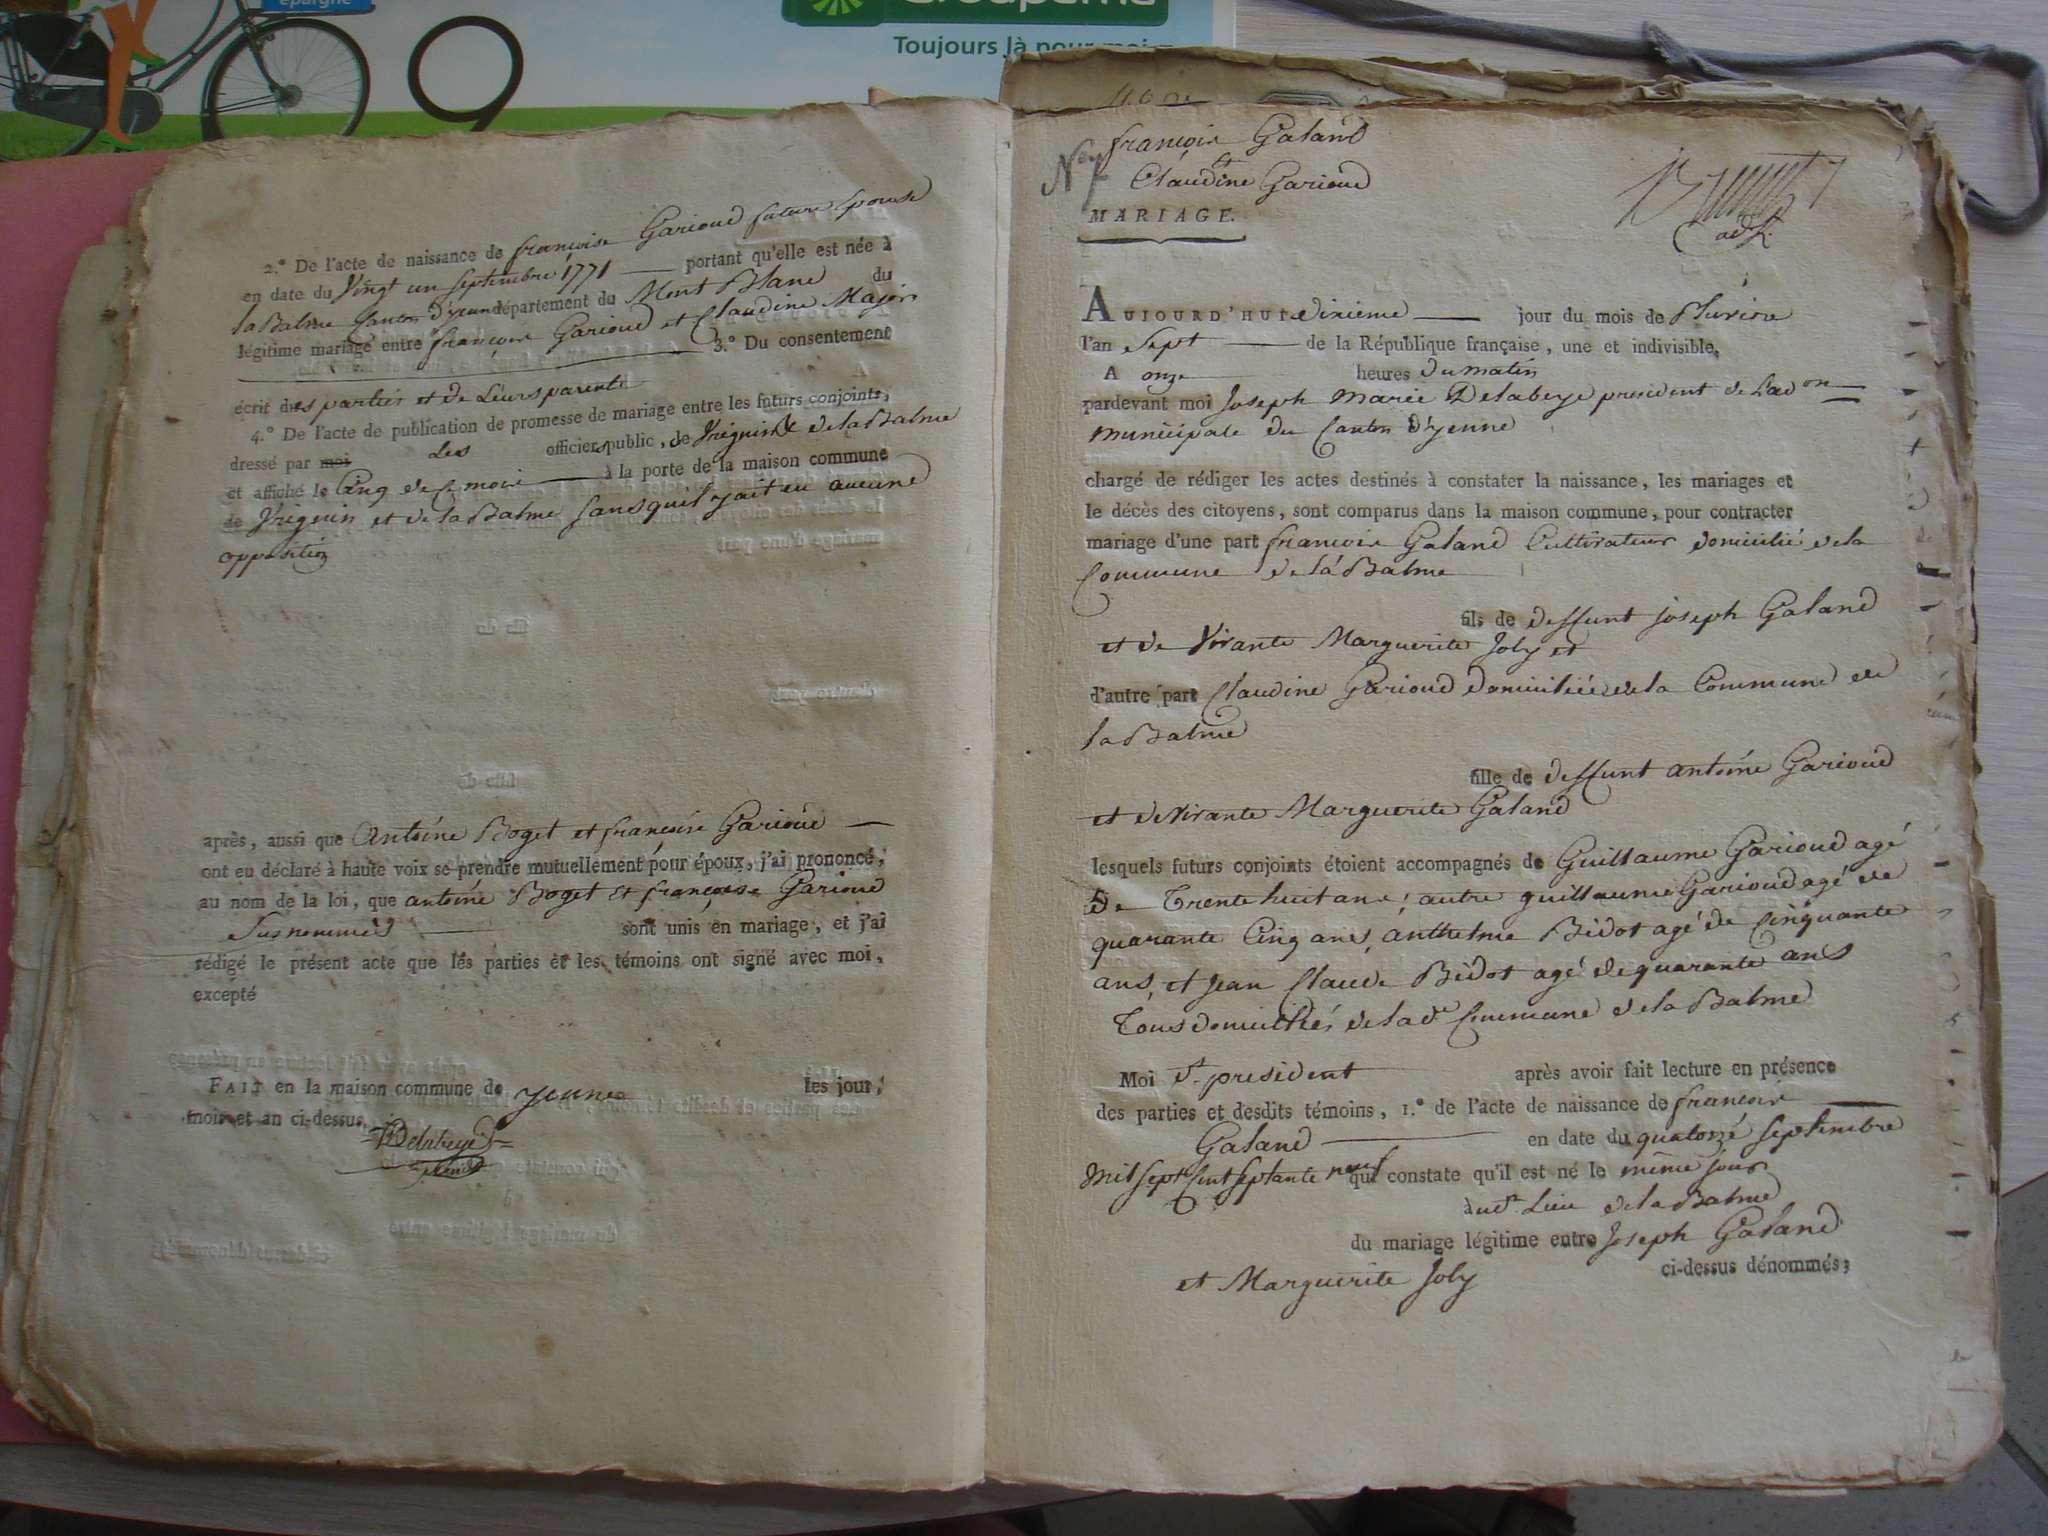 épargne
Groupama
Toujours là pour moi
2.° De l'acte de naissance de françoise Garioud future Epouse
en date du Vingt un septembre 1771 portant qu'elle est née à
la Balme Canton d'yenne département du Mont Blanc du
légitime mariage entre françois Garioud et Claudine Major
3.° Du consentement
écrit des parties et de Leurs parents
4.° De l'acte de publication de promesse de mariage entre les futurs conjoints,
dressé par moi les officiers public, de Tréguin & de la Balme
et affiché le Cinq de ce mois à la porte de la maison commune
de Tréguin et de la Balme sans quil y ait eu aucune
opposition
après, aussi que Antoine Boget et françoise Garioud
ont eu déclaré à haute voix se prendre mutuellement pour époux, j'ai prononcé,
au nom de la loi, que antoine Boget et françoise Garioud
Susnommés sont unis en mariage, et j'ai
rédigé le présent acte que les parties et les témoins ont signé avec moi,
excepté
FAIT en la maison commune de yenne les jour,
mois et an ci-dessus,
Delabeye
présidt
françois Galand
N.° 7 et
Claudine Garioud
MARIAGE.
AUJOURD'HUI dixieme jour du mois de Pluviose
l'an Sept de la République française, une et indivisible,
A onze heures du matin
pardevant moi Joseph Marie Delabeye president de L'adon
Municipale du Canton d'yenne
chargé de rédiger les actes destinés à constater la naissance, les mariages et
le décès des citoyens, sont comparus dans la maison commune, pour contracter
mariage d'une part francois Galand Cultivateur domicilié de la
Commune de la Balme
fils de deffunt joseph Galand
et de Vivante Marguerite Joly et
d'autre part Claudine Garioud domiciliée de la Commune de
la Balme
fille de deffunt antoine Garioud
et de Vivante Marguerite Galand
lesquels futurs conjoints étoient accompagnés de Guillaume Garioud agé
de Trente huit ans; autre guillaume Garioud agé de
quarante Cinq ans, anthelme Bidot agé de Cinquante
ans, et Jean Claude Bidot agé de quarante ans
Tous domiciliés de lade Commune de la Balme
Moi dt president après avoir fait lecture en présence
des parties et desdits témoins, 1.° de l'acte de naissance de francois
Galand en date du quatorze septembre
Mil sept Cent septante neuf qui constate qu'il est né le même jour
audt Lieu de la Balme
du mariage légitime entre Joseph Galand
et Marguerite Joly ci-dessus dénommés;